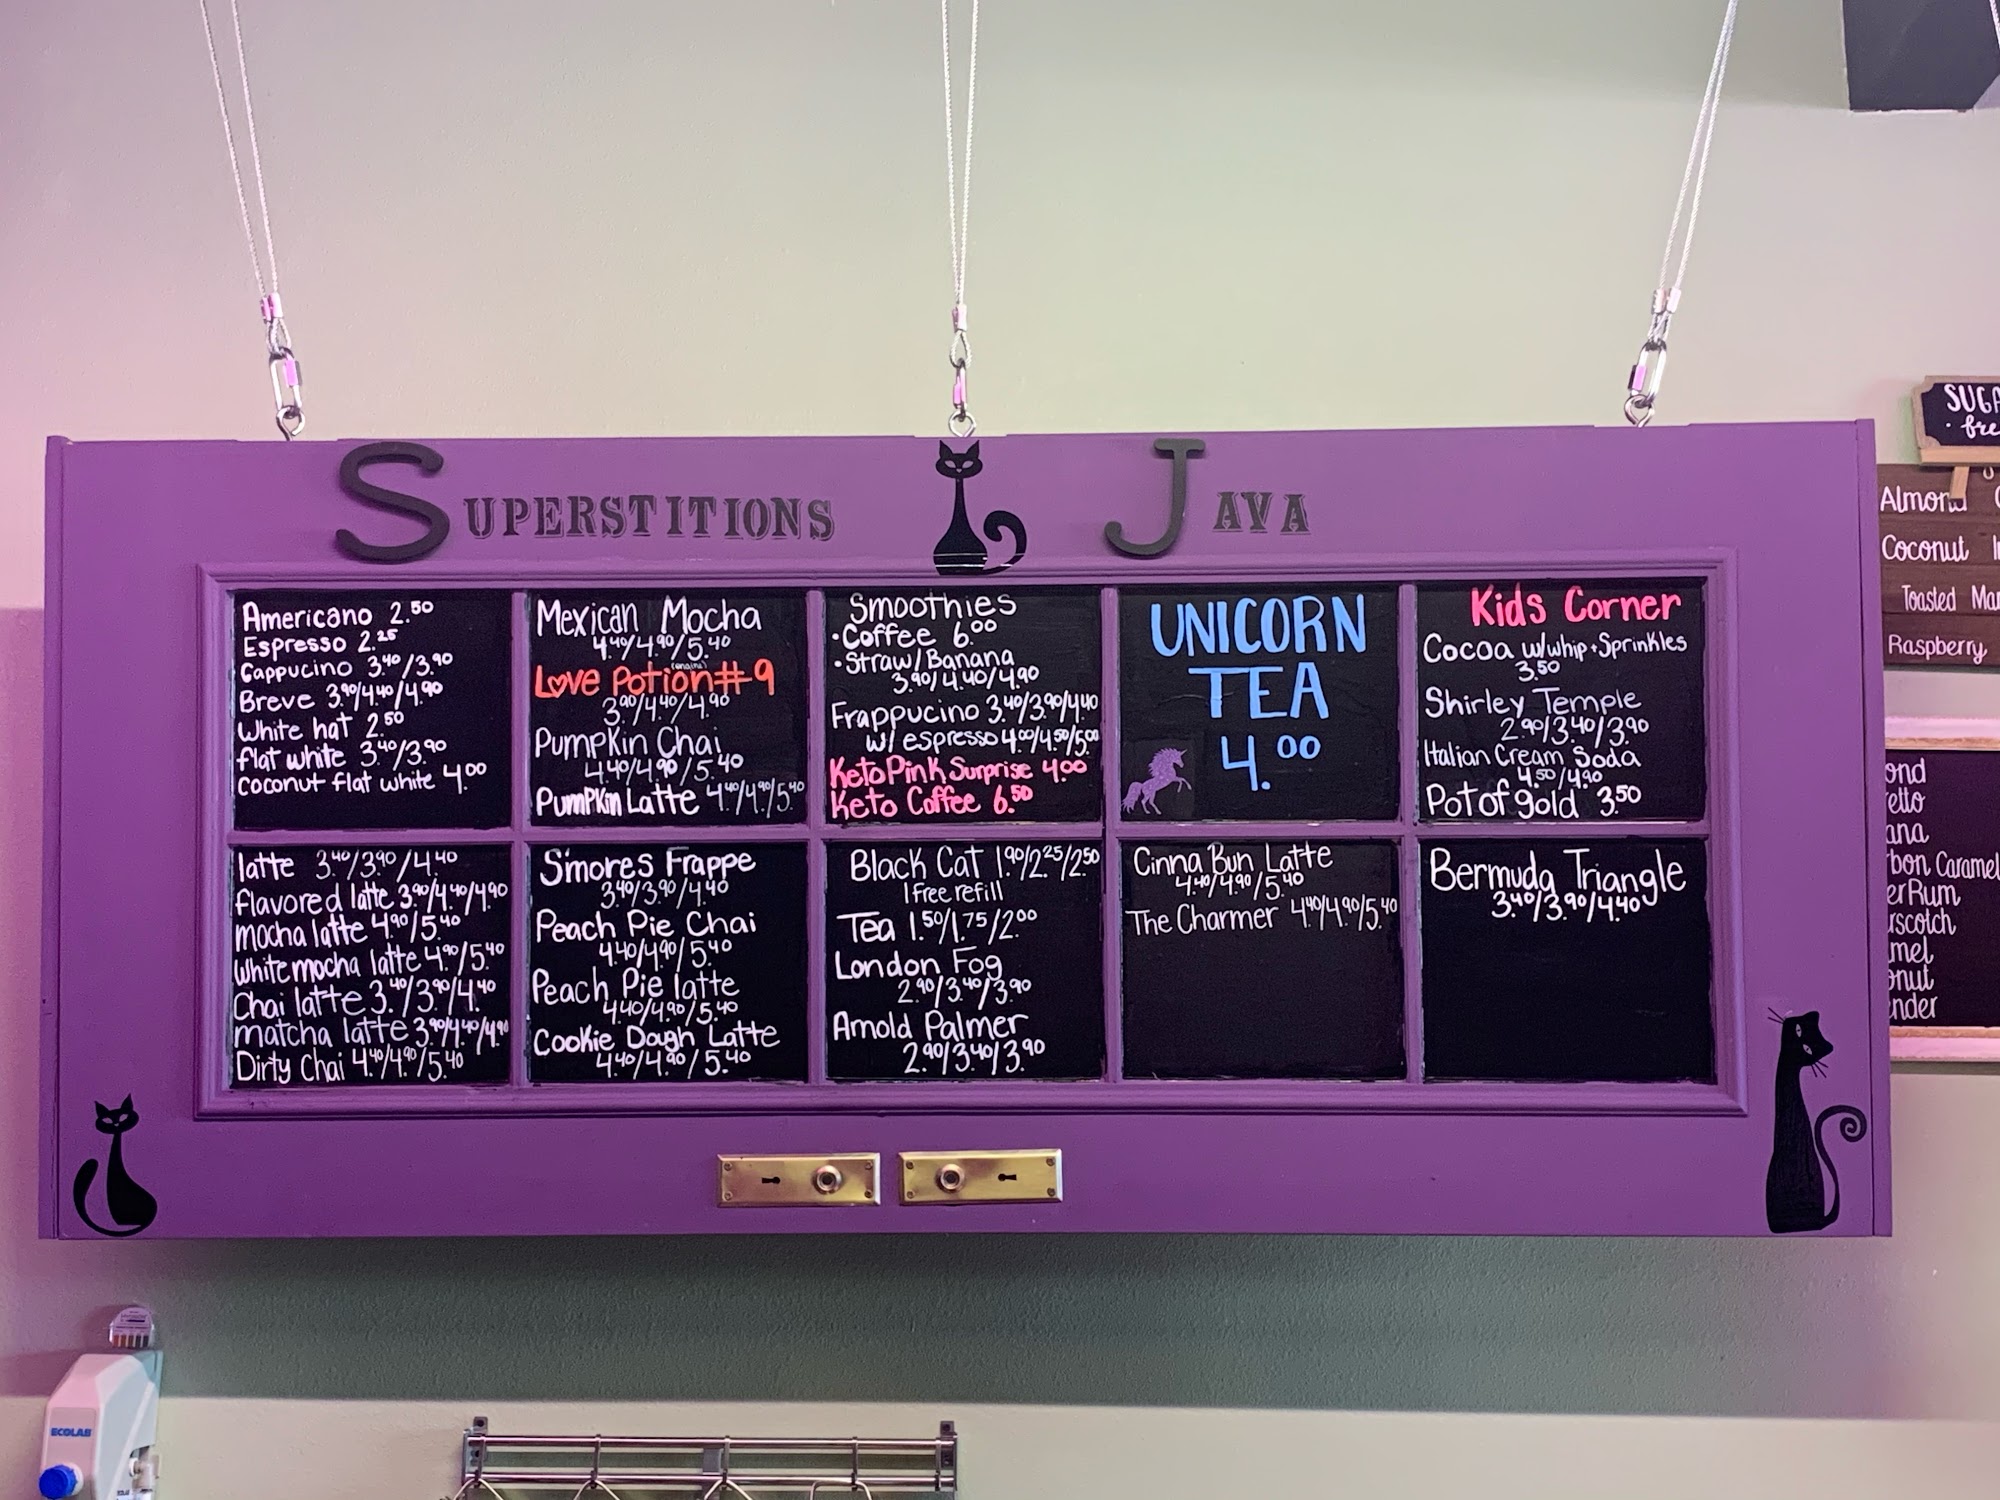 SUPERSTITIONS JAVA
Americano 2.50
Espresso 2.25
Cappucino 3.40/3.90
Breve 3.90/4.40/4.90
White hat 2.50
flat white 3.40/3.90
coconut flat white 4.00
Mexican Mocha
4.40/4.90/5.40
Love Potion#9
3.90/4.40/4.90
Pumpkin Chai
4.40/4.90/5.40
Pumpkin Latte 4.40/4.90/5.40
Smoothies
•Coffee 6.00
•Straw/Banana
3.90/4.40/4.90
Frappucino 3.40/3.90/4.40
w/ espresso 4.00/4.50/5.00
Keto Pink Surprise 4.00
Keto Coffee 6.50
UNICORN
TEA
4.00
Kids Corner
Cocoa w/whip+Sprinkles
3.50
Shirley Temple
2.90/3.40/3.90
Italian Cream Soda
4.50/4.90
Pot of gold 3.50
latte 3.40/3.90/4.40
flavored latte 3.90/4.40/4.90
mocha latte 4.90/5.40
White mocha latte 4.90/5.40
Chai latte 3.40/3.90/4.40
matcha latte 3.90/4.40/4.90
Dirty Chai 4.40/4.90/5.40
S'mores Frappe
3.40/3.90/4.40
Peach Pie Chai
4.40/4.90/5.40
Peach Pie latte
4.40/4.90/5.40
Cookie Dough Latte
4.40/4.90/5.40
Black Cat 1.90/2.25/2.50
1 free refill
Tea 1.50/1.75/2.00
London Fog
2.90/3.40/3.90
Arnold Palmer
2.90/3.40/3.90
Cinna Bun Latte
4.40/4.90/5.40
The Charmer 4.40/4.90/5.40
Bermuda Triangle
3.40/3.90/4.40
Almond
Coconut
Toasted
Raspberry
Caramel
Rum
ECOLAB